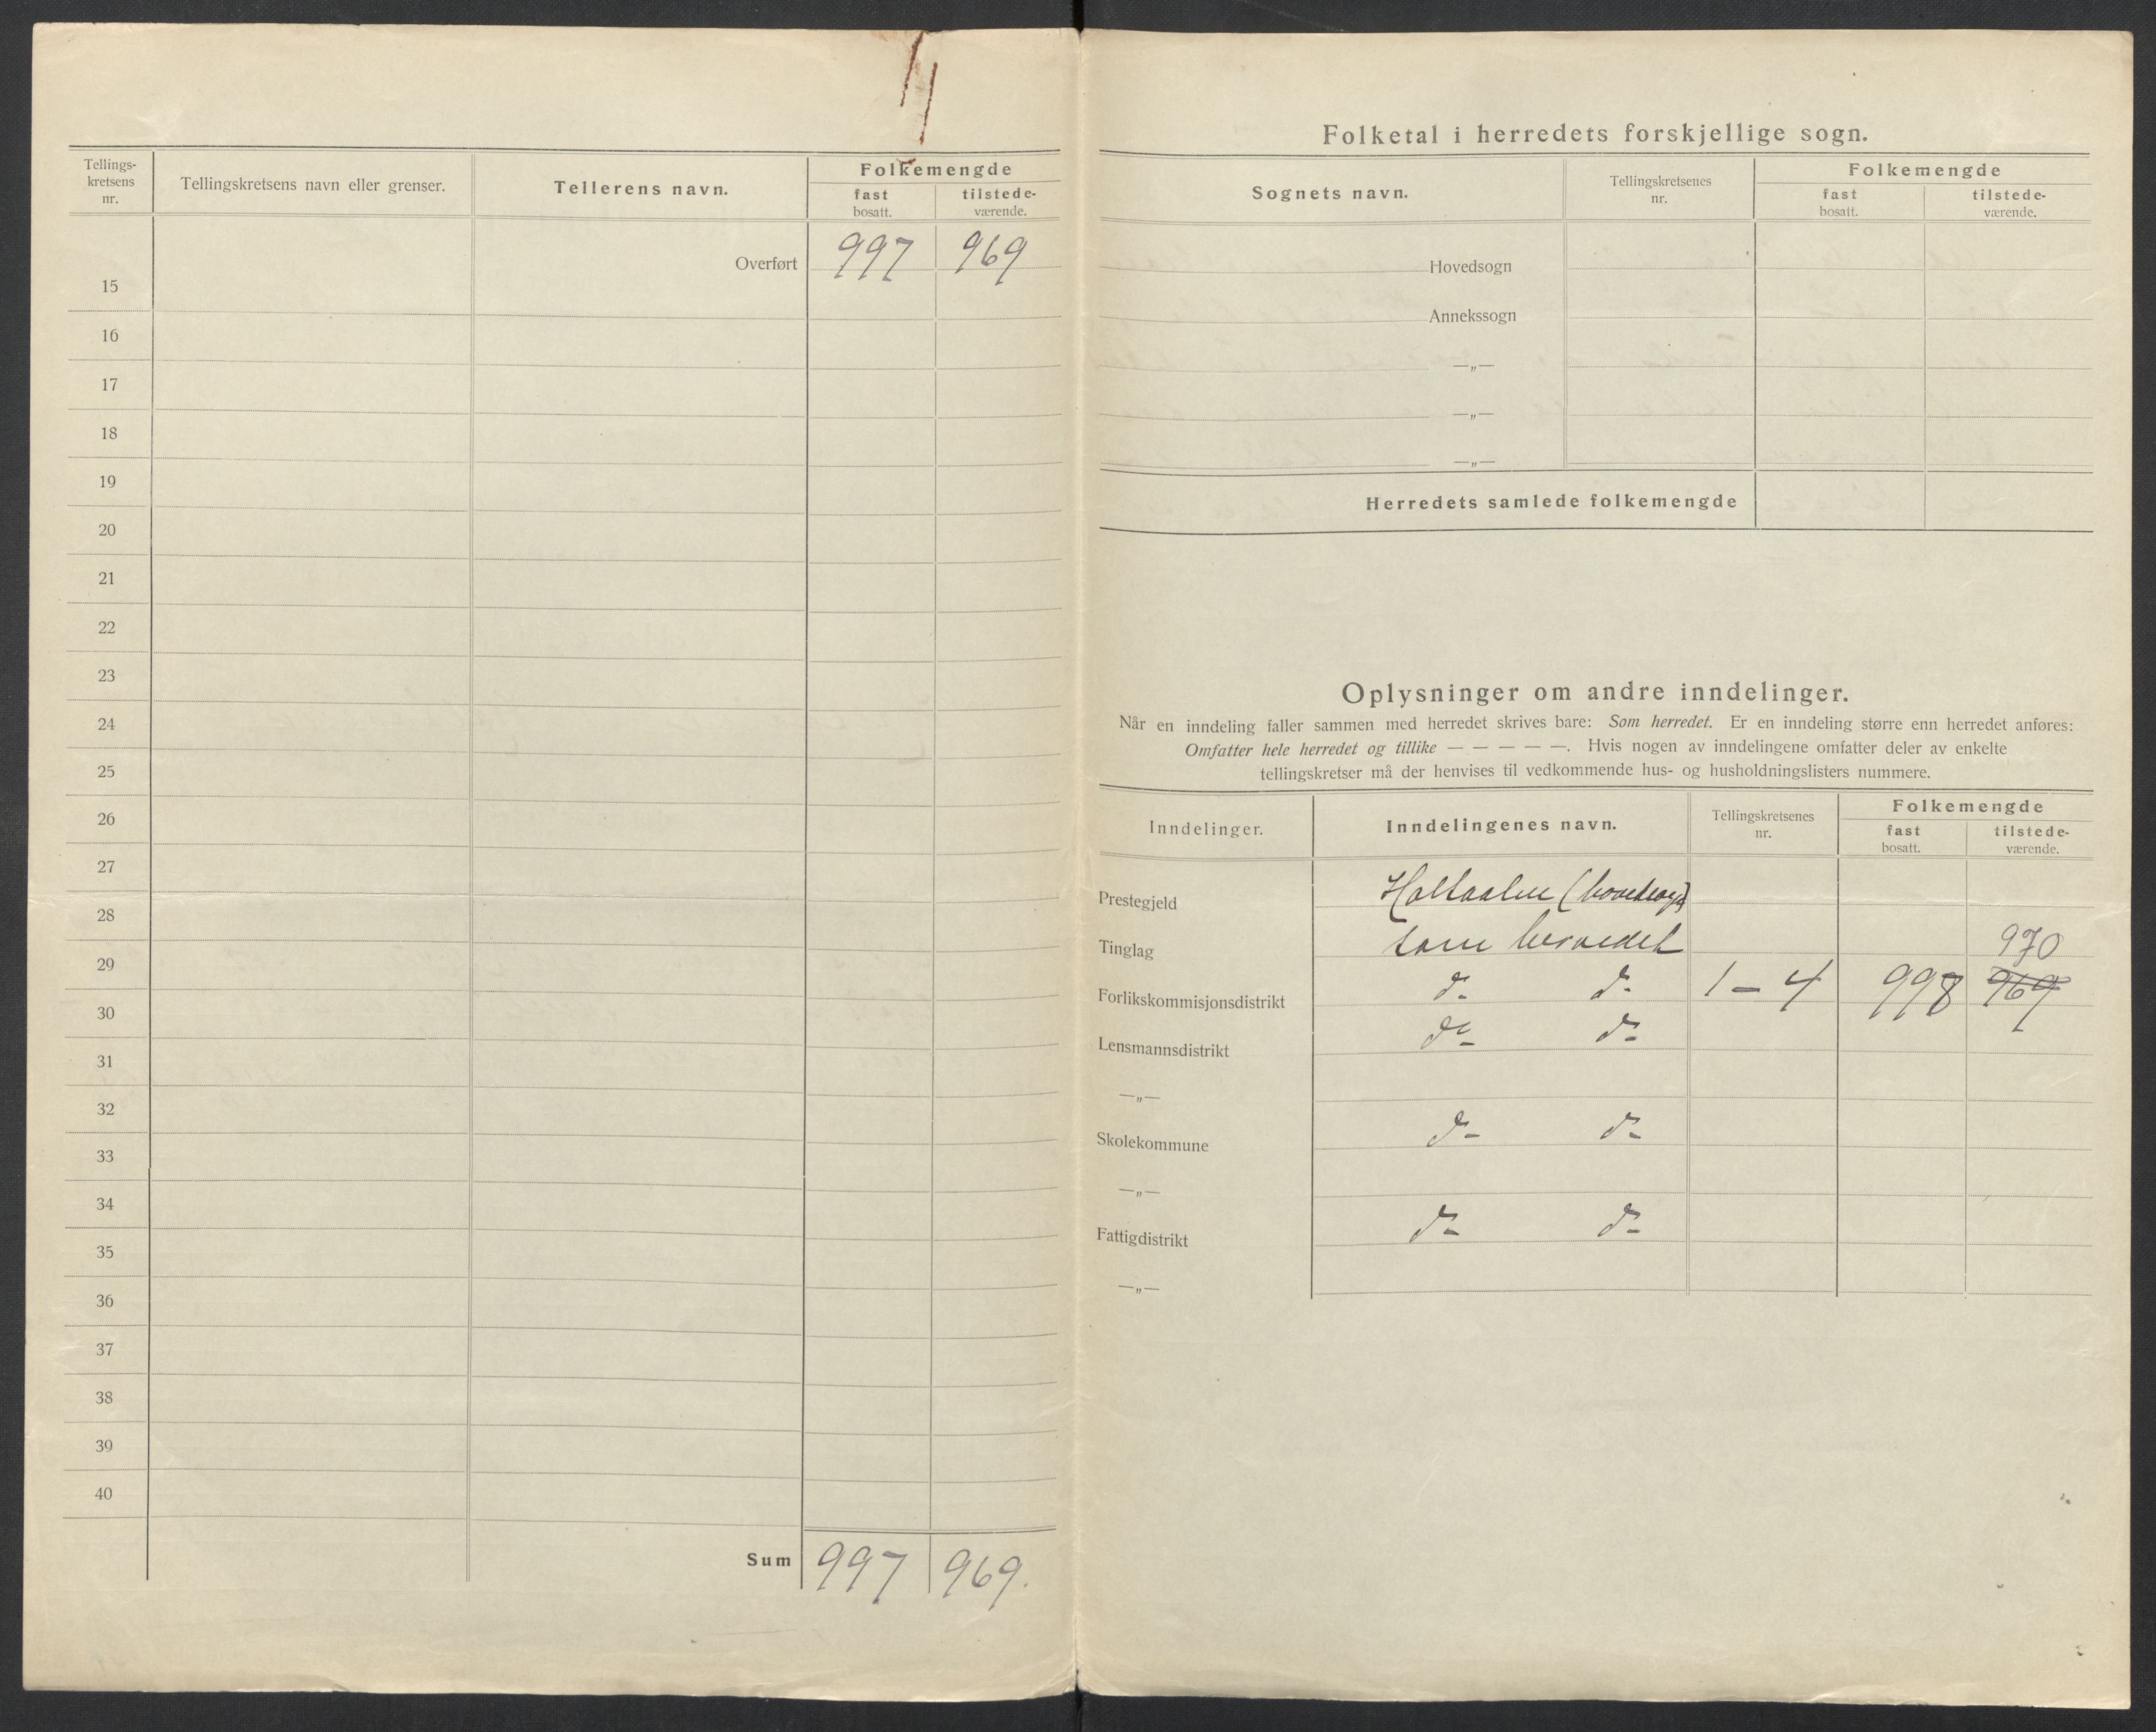 Tellings-
kretsens
nr.
Tellingskretsens navn eller grenser.
Tellerens navn.
Folkemengde
fast
bosatt.
tilstede-
værende.
Overført 997 969
15
16
17
18
19
20
21
22
23
24
25
26
27
28
29
30
31
32
33
34
35
36
37
38
39
40
Sum 997 969.
Folketal i herredets forskjellige sogn.
Sognets navn.
Tellingskretsenes
nr.
Folkemengde
fast
bosatt.
tilstede-
værende.
Hovedsogn
Annekssogn
—„—
—„—
—„—
Herredets samlede folkemengde
Oplysninger om andre inndelinger.
Når en inndeling faller sammen med herredet skrives bare: Som herredet. Er en inndeling større enn herredet anføres:
Omfatter hele herredet og tillike — — — — —. Hvis nogen av inndelingene omfatter deler av enkelte
tellingskretser må der henvises til vedkommende hus- og husholdningslisters nummere.
Inndelinger.
Inndelingenes navn.
Tellingskretsenes
nr.
Folkemengde
fast
bosatt.
tilstede-
værende.
Prestegjeld Holtaalen (hovedsogn)
Tinglag som herredet 970
Forlikskommisjonsdistrikt d- d- 1 - 4 998 969
Lensmannsdistrikt do- d-
—„—
Skolekommune d- d-
—„—
Fattigdistrikt d- d-
—„—